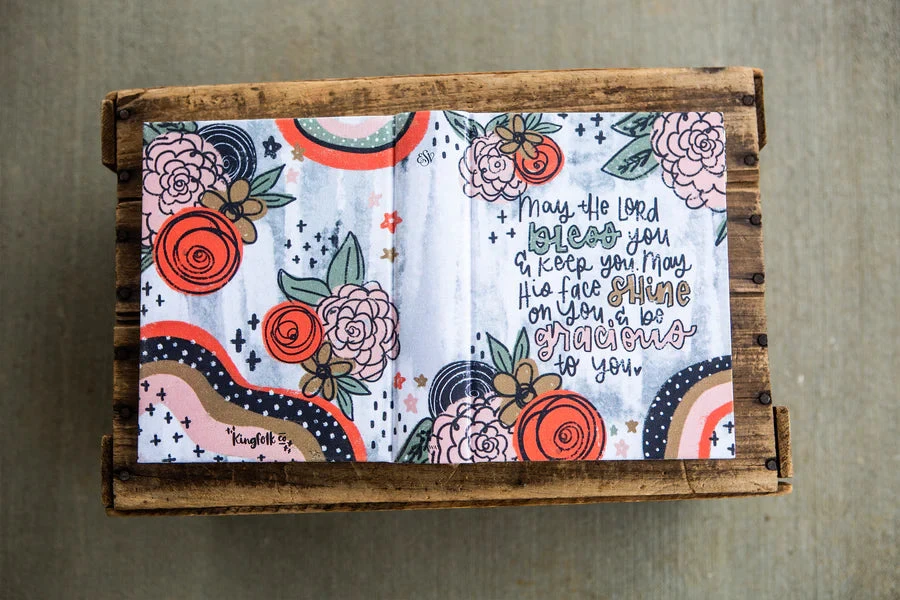 May the Lord
bless you
& keep you. May
His face shine
on you & be
gracious
to you
Kingfolk co